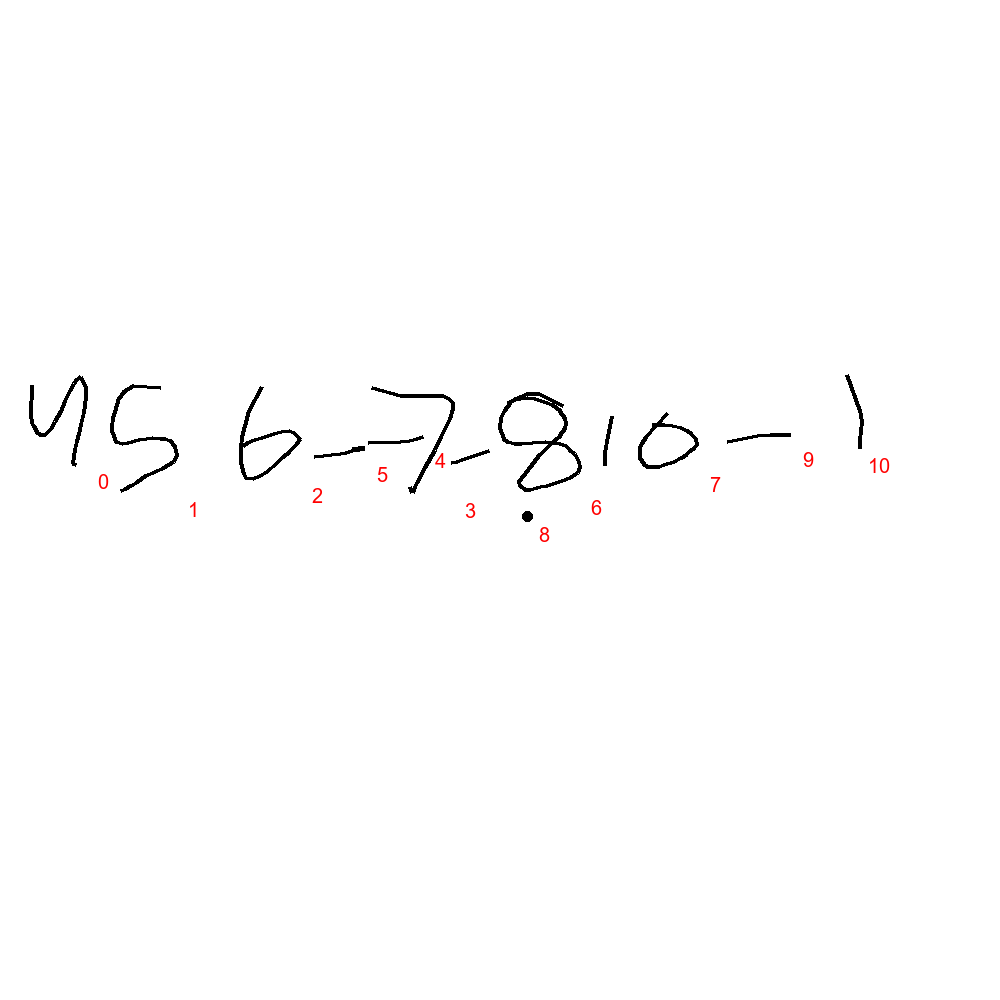 456-7-810-1
0 1 2 5 4 3 8 6 7 9 10